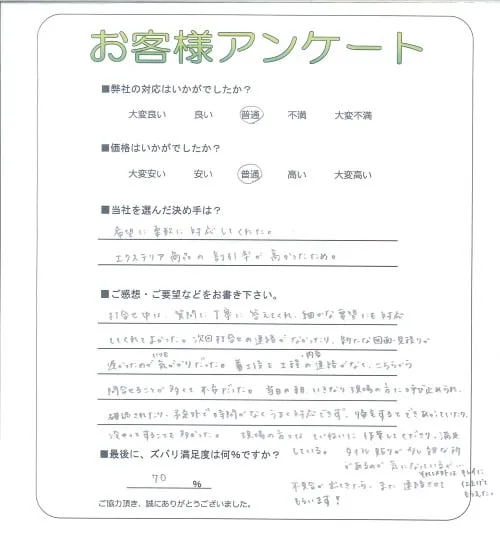 お客様アンケート
■弊社の対応はいかがでしたか?
大変良い 良い 普通 不満 大変不満
■価格はいかがでしたか?
大変安い 安い 普通 高い 大変高い
■当社を選んだ決め手は?
希望に柔軟に対応してくれた。
エクステリア商品の割引率が高かったため。
■ご感想・ご要望などをお書き下さい。
打合せ中は、質問に丁寧に答えてくれ、細かな要望にも対応
してくれてよかった。次回打合せの連絡がなかったり、新たな図面・見積りが
遅かったのがいつも気がかりだった。着工後も工程・内容の連絡がなく、こちらから
問合せることが多くて不安だった。当日の朝、いきなり現場の方に呼び止められ、
確認されたり、予定外で時間がなくうまく対応できず、帰宅するとでき上がっていたり、
決めってすることも多かった。 現場の方々は ていねいに作業してくださり、満足
している。 タイル貼りが少し雑な所
があるのが気になっているが…
それ以外はきれいに
仕上げて
もらえた。
不具合が出てきたら、また連絡させて
もらいます!
■最後に、ズバリ満足度は何%ですか?
70 %
ご協力頂き、誠にありがとうございました。